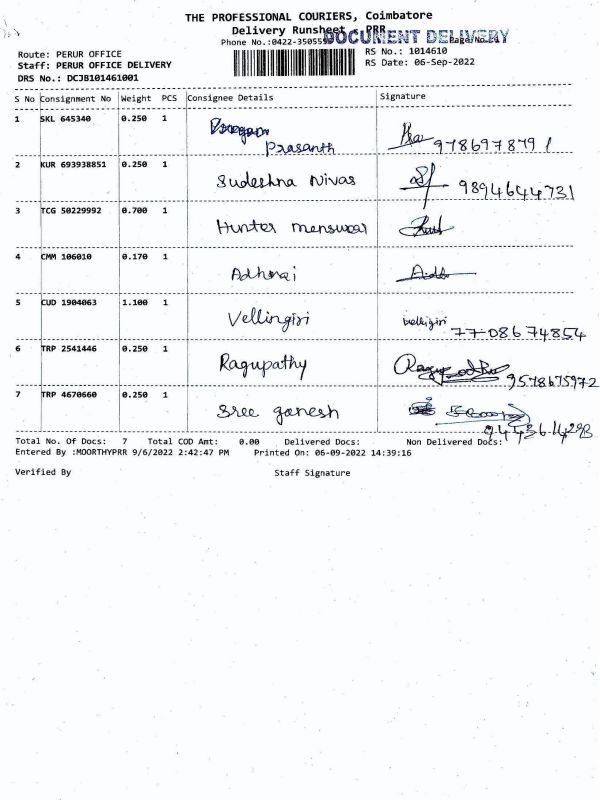 THE PROFESSIONAL COURIERS, Coimbatore
Delivery Runsheet PRR
DOCUMENT DELIVERY
Phone No.:0422-350555
Page No.
Route: PERUR OFFICE
RS No.: 1014610
Staff: PERUR OFFICE DELIVERY
RS Date: 06-Sep-2022
DRS No.: DCJB101461001
S No Consignment No Weight PCS Consignee Details Signature
1 SKL 645340 0.250 1
Prasanth 9786978791
2 KUR 693938851 0.250 1
Sudeshna Nivas 9894644731
3 TCG 50229992 0.700 1
Hunter menswear
4 CMM 106010 0.170 1
Adhirai
5 CUD 1904063 1.100 1
Vellingiri velligiri 7708674854
6 TRP 2541446 0.250 1
Ragupathy 9578675972
7 TRP 4670660 0.250 1
Sree ganesh
Total No. Of Docs: 7 Total COD Amt: 0.00 Delivered Docs: Non Delivered Docs:
Entered By :MOORTHYPRR 9/6/2022 2:42:47 PM Printed On: 06-09-2022 14:39:16
Verified By Staff Signature